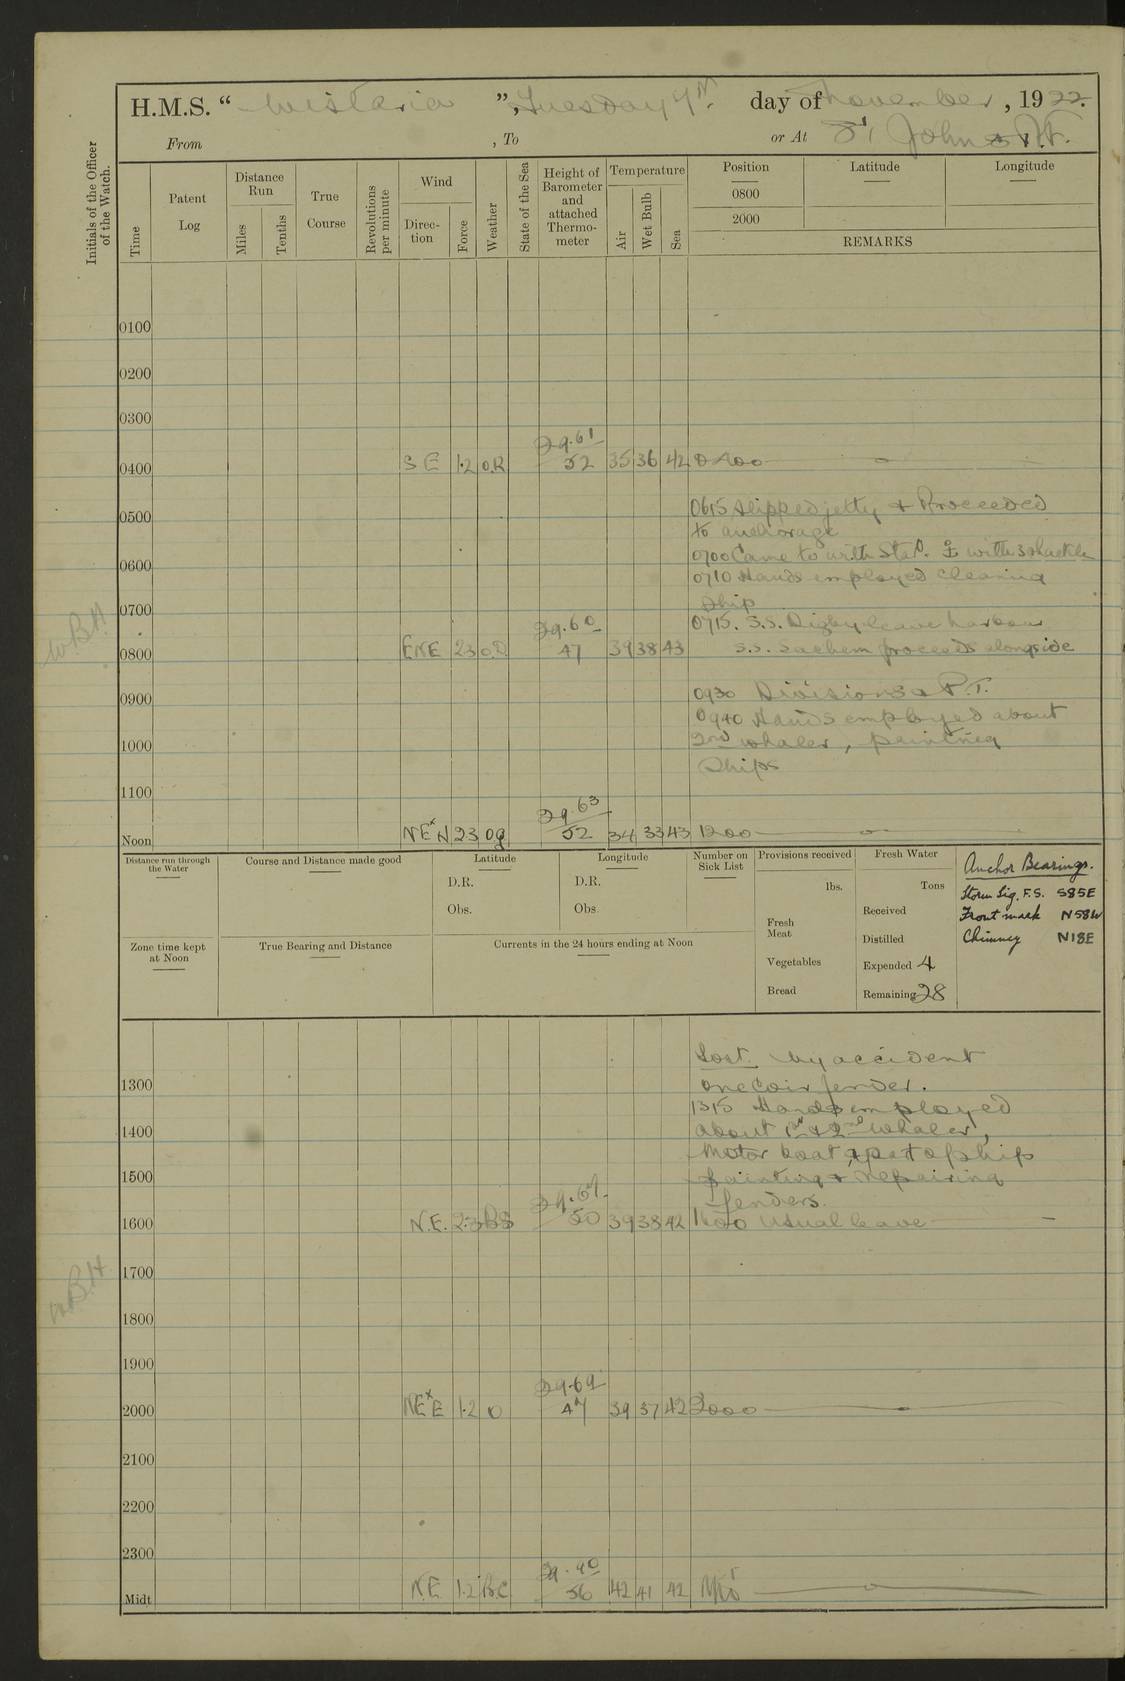 H.M.S. “ Wistaria ”, Tuesday 7th. day of November, 1922.
From , To or At St John's N.F.
Initials of the Officer of the Watch.
Time
Patent Log
Distance Run
Miles
Tenths
True Course
Revolutions per minute
Wind
Direction
Force
Weather
State of the Sea
Height of Barometer and attached Thermometer
Temperature
Air
Wet Bulb
Sea
Position
0800
2000
Latitude
Longitude
REMARKS
0100
0200
0300
0400 SE 1.2 O.R 29.61 52 35 36 42 0400
0500 0615 Slipped jetty & Proceeded
to anchorage
0700 Came to with Stbd. with 3 shackles
0600 0710 Hands employed cleaning
0700 Ship
0715. S.S. Digby leave harbour
W.B.H.
0800 ENE 2.3 O.D 29.60 47 39 38 43 S.S. Sachem proceeds alongside
0900 0930 Divisions & P.T.
0940 Hands employed about
1000 2nd whaler, painting
Ships
1100
Noon NExN 23 Og 29.63 52 34 33 43 1200
Distance run through the Water
Course and Distance made good
Latitude
D.R.
Obs.
Longitude
D.R.
Obs.
Number on Sick List
Provisions received
lbs.
Fresh Meat
Vegetables
Bread
Fresh Water
Tons
Received
Distilled
Expended 4
Remaining 28
Anchor Bearings.
Storm Sig. F.S. S85E
Front mark N58W
Chimney N18E
Zone time kept at Noon
True Bearing and Distance
Currents in the 24 hours ending at Noon
Lost by accident
1300 one Coir fender.
1315 Hands employed
1400 about 1st & 2nd whaler,
Motor boat & part of ship
1500 painting & repairing
fenders.
1600 N.E. 2.3 BS 50 39 38 42 1600 Usual leave
1700
W.B.H.
1800
1900
2000 NExE 1.2 O 29.69 47 39 37 42 2000
2100
2200
2300
Midt NE 1.2 B.C. 56 42 41 42 Midt